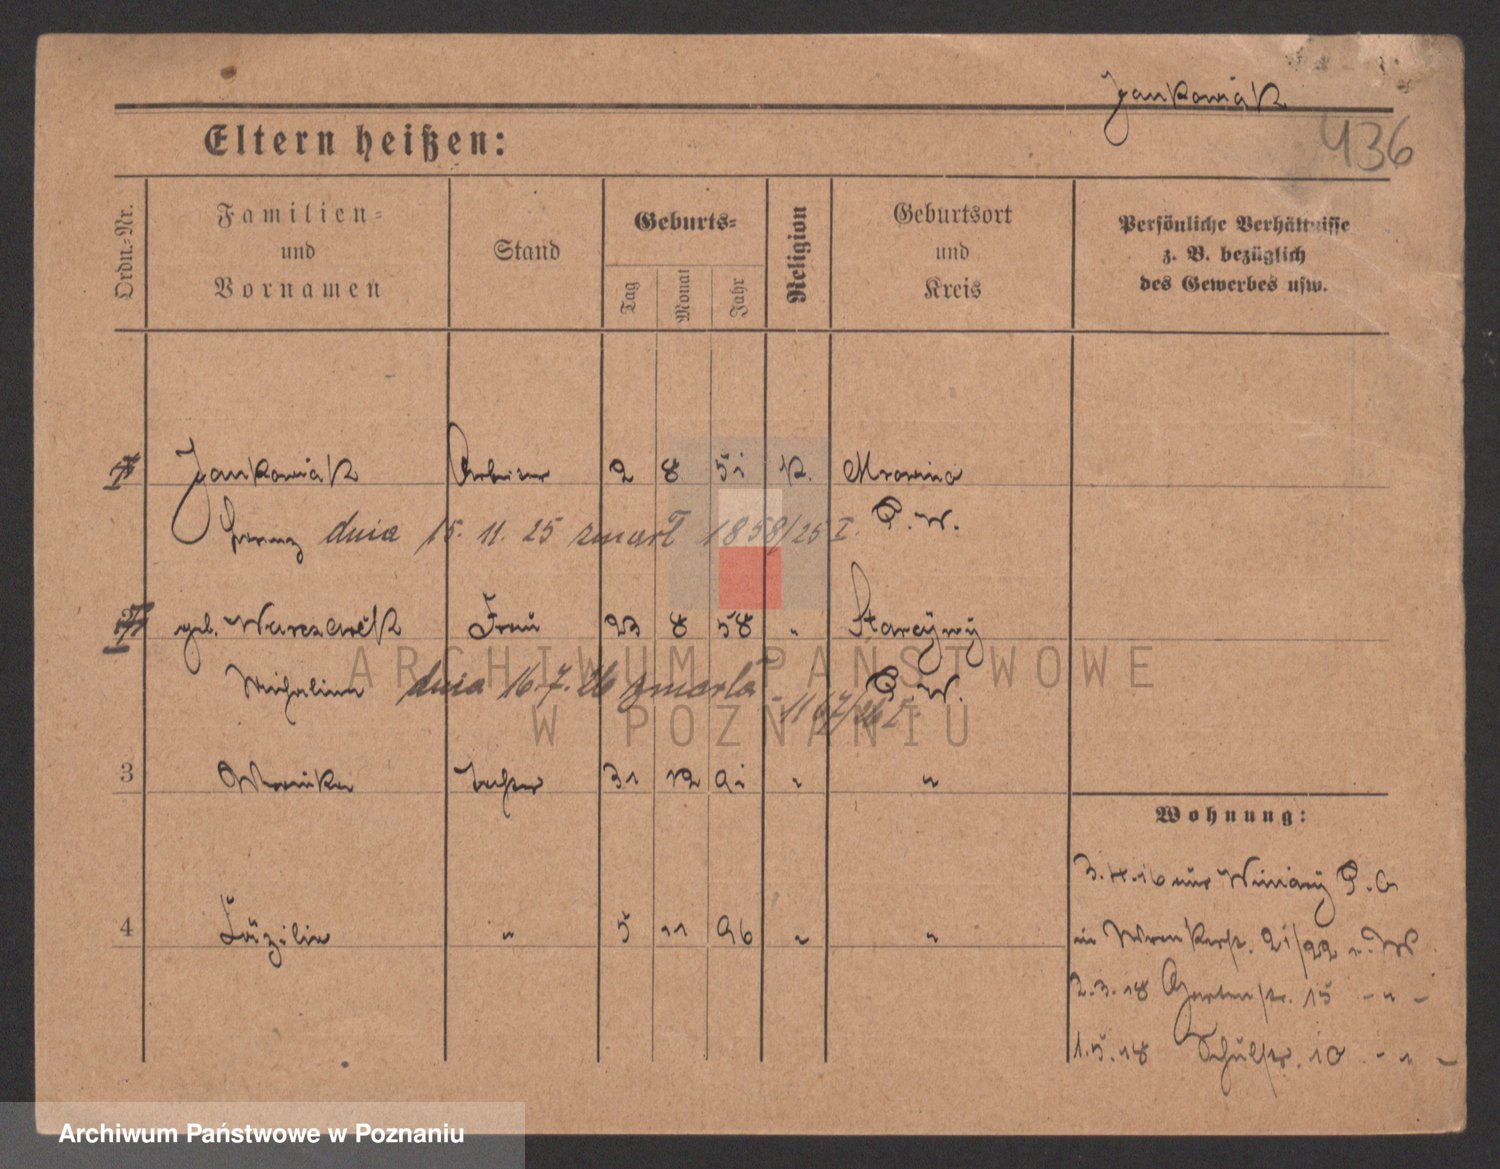 Jankowiak
436
Eltern heißen:
Ordn.=Nr.
Familien=
und
Vornamen
Stand
Geburts=
Tag
Monat
Jahr
Religion
Geburtsort
und
Kreis
Persönliche Verhältnisse
z. B. bezüglich
des Gewerbes usw.
Jankowiak Arbeiter 2 8 51 k. Mrowino
dnia 15. 11. 25 zmarł 1858/25 I. P. W.
geb. Frau 23 8 58 "
dnia 16.7.26 zmarła 1167/26 I P. W.
3 Tochter 31 12 91 " "
Wohnung:
4 Cäzilie " 5 11 96 " "
3.4.16 aus Winiary P. O
in 21/22 b. W
2.3.18 Gartenstr. 15 - " -
1.5.18 Schulstr. 10 - " -
ARCHIWUM PAŃSTWOWE
W POZNANIU
Archiwum Państwowe w Poznaniu